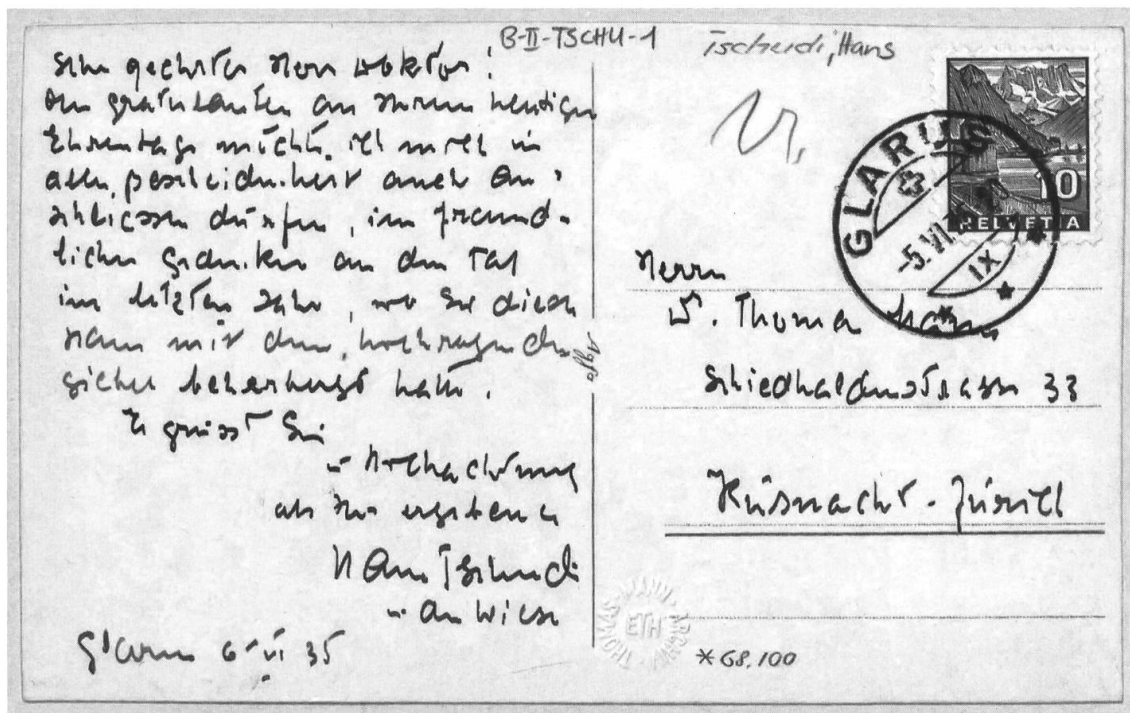 B-II-TSCHU-1
Tschudi, Hans
Sehr geehrter Herr Doktor!
Den Gratulanten an Ihrem heutigen
Ehrentage möchte ich mich in
aller Bescheidenheit auch an-
schliessen dürfen, im freund-
lichen Gedenken an den Tag
im letzten Jahr, wo Sie
mit dem
beherbergt hatte.
Es grüsst Sie
in Hochachtung
als Ihr ergebener
Hans Tschudi
Wiese
Glarus 6 VI 35
Agfa
HELVETIA
10
GLARUS
-5.VI
IX
Herrn
Dr. Thomas Mann
Schiedhaldenstrasse 33
Küsnacht-Zürich
THOMAS-MANN-ARCHIV
ETH
*G8.100